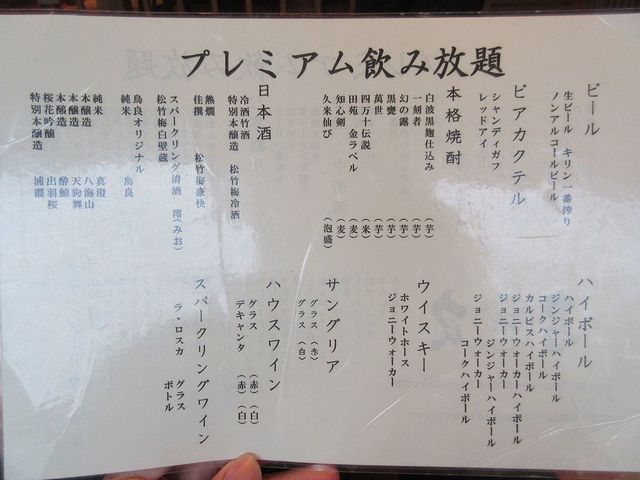 プレミアム飲み放題
ビール
生ビール キリン一番搾り
ノンアルコールビール
ビアカクテル
シャンディガフ
レッドアイ
本格焼酎
白波黒麹仕込み (芋)
一刻者 (芋)
幻の露 (芋)
黒甕 (芋)
萬世 (芋)
四万十伝説 (米)
田苑 金ラベル (麦)
知心剣 (麦)
久米仙び (泡盛)
日本酒
冷酒竹酒
特別本醸造 松竹梅冷酒
熱燗
佳撰 松竹梅豪快
スパークリング清酒 澪(みお)
松竹梅白壁蔵
鳥良オリジナル
純米 鳥良
純米 真澄
本醸造 八海山
本醸造 天狗舞
本醸造 酔鯨
桜花吟醸 出羽桜
特別本醸造 浦霞
ハイボール
ハイボール
ジンジャーハイボール
コークハイボール
カルピスハイボール
ジョニーウォーカーハイボール
ジョニーウォーカー
ジンジャーハイボール
ジョニーウォーカー
コークハイボール
ウイスキー
ホワイトホース
ジョニーウォーカー
サングリア
グラス (赤)
グラス (白)
ハウスワイン
グラス (赤) (白)
デキャンタ (赤) (白)
スパークリングワイン
ラ・ロスカ グラス
ボトル